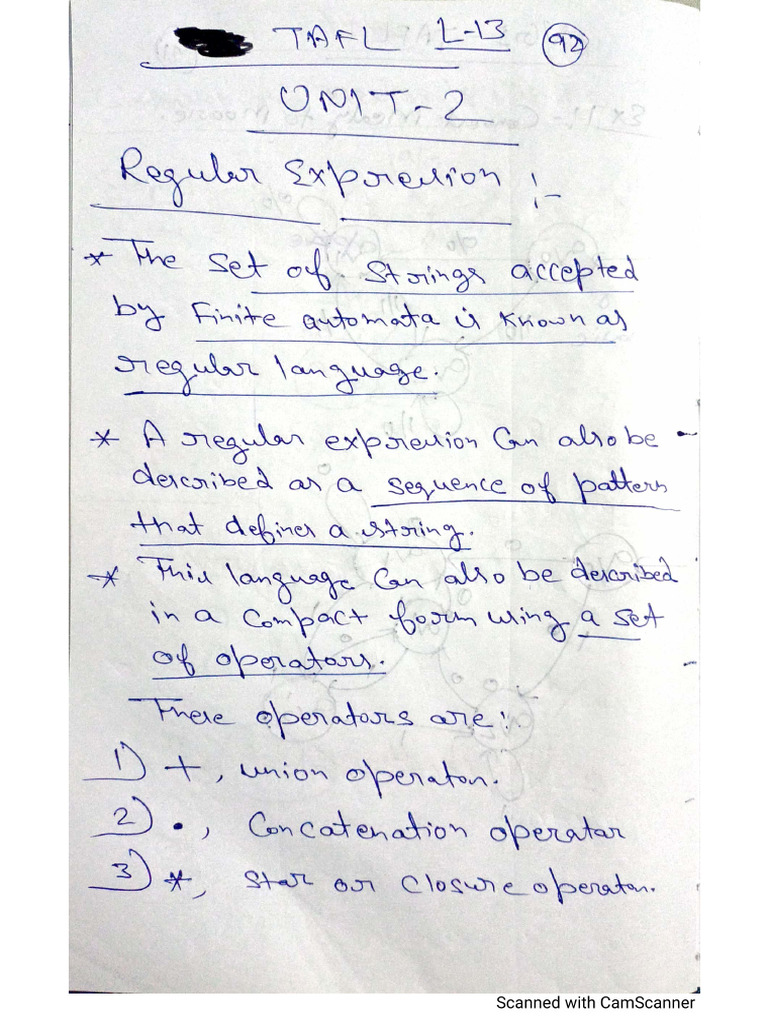 TAFL L-13 92
UNIT-2
Regular Expression :-
* The set of strings accepted
by finite automata is known as
regular language.
* A regular expression can also be
described as a sequence of pattern
that defines a string.
* This language can also be described
in a compact form using a set
of operators.
These operators are:
1) +, union operator.
2) ., Concatenation operator
3) *, star or closure operator.
Scanned with CamScanner